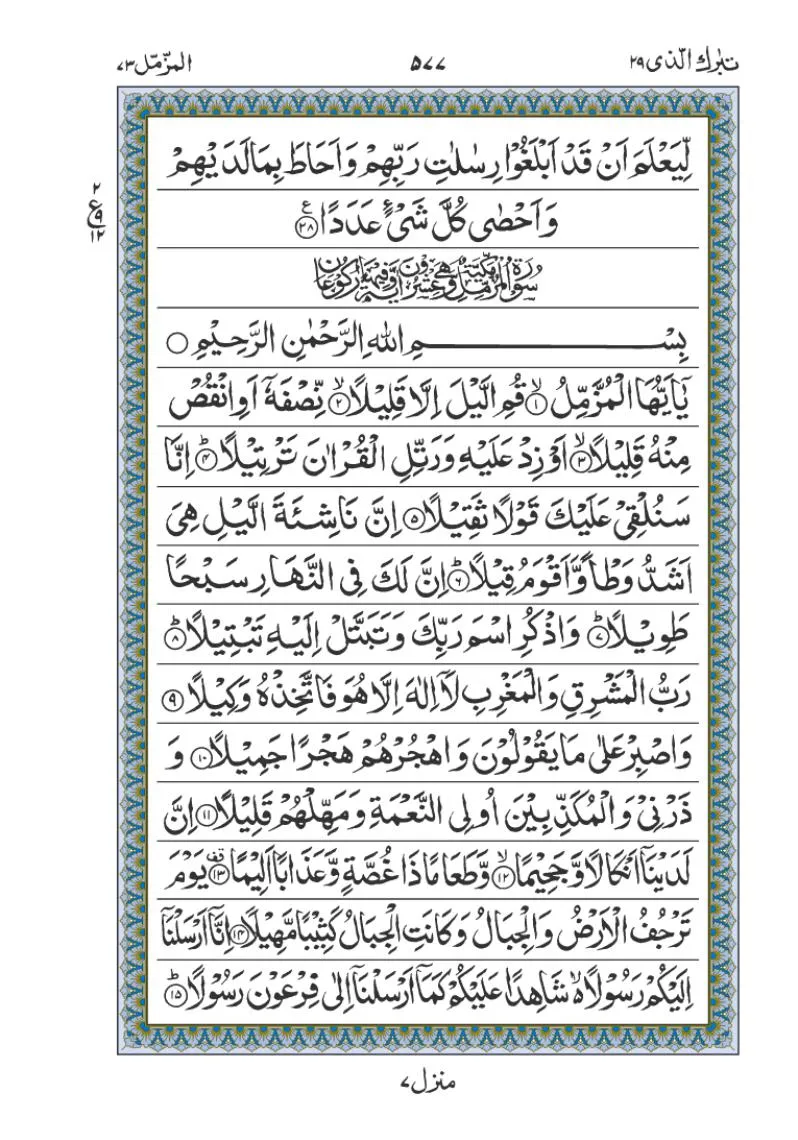 تبٰرك الّذی ٢٩
٥٧٧
المزّمّل ٧٣
لِّیَعْلَمَ اَنْ قَدْ اَبْلَغُوْا رِسٰلٰتِ رَبِّهِمْ وَ اَحَاطَ بِمَا لَدَیْهِمْ
وَ اَحْصٰى كُلَّ شَیْءٍ عَدَدًا۠ ﴿٢٨﴾ ع
٢
ع
٩
١٢
سُوْرَةُ الْمُزَّمِّلِ مَكِّیَّةٌ وَّهِیَ عِشْرُوْنَ اٰیَةً وَّفِیْهَا رُكُوْعَانِ
بِسْمِ اللّٰهِ الرَّحْمٰنِ الرَّحِیْمِ ○
یٰۤاَیُّهَا الْمُزَّمِّلُ ﴿١﴾ۙ قُمِ الَّیْلَ اِلَّا قَلِیْلًا ﴿٢﴾ۙ نِّصْفَهٗۤ اَوِ انْقُصْ
مِنْهُ قَلِیْلًا ﴿٣﴾ۙ اَوْ زِدْ عَلَیْهِ وَ رَتِّلِ الْقُرْاٰنَ تَرْتِیْلًا ﴿٤﴾ؕ اِنَّا
سَنُلْقِیْ عَلَیْكَ قَوْلًا ثَقِیْلًا ﴿٥﴾ اِنَّ نَاشِئَةَ الَّیْلِ هِیَ
اَشَدُّ وَطْاً وَّ اَقْوَمُ قِیْلًا ﴿٦﴾ؕ اِنَّ لَكَ فِی النَّهَارِ سَبْحًا
طَوِیْلًا ﴿٧﴾ؕ وَ اذْكُرِ اسْمَ رَبِّكَ وَ تَبَتَّلْ اِلَیْهِ تَبْتِیْلًا ﴿٨﴾ؕ
رَبُّ الْمَشْرِقِ وَ الْمَغْرِبِ لَاۤ اِلٰهَ اِلَّا هُوَ فَاتَّخِذْهُ وَكِیْلًا ﴿٩﴾
وَ اصْبِرْ عَلٰى مَا یَقُوْلُوْنَ وَ اهْجُرْهُمْ هَجْرًا جَمِیْلًا ﴿١٠﴾ وَ
ذَرْنِیْ وَ الْمُكَذِّبِیْنَ اُولِی النَّعْمَةِ وَ مَهِّلْهُمْ قَلِیْلًا ﴿١١﴾ اِنَّ
لَدَیْنَاۤ اَنْكَالًا وَّ جَحِیْمًا ﴿١٢﴾ۙ وَّ طَعَامًا ذَا غُصَّةٍ وَّ عَذَابًا اَلِیْمًا ﴿١٣﴾ۗ یَوْمَ
تَرْجُفُ الْاَرْضُ وَ الْجِبَالُ وَ كَانَتِ الْجِبَالُ كَثِیْبًا مَّهِیْلًا ﴿١٤﴾ اِنَّاۤ اَرْسَلْنَاۤ
اِلَیْكُمْ رَسُوْلًا ۙ۬ شَاهِدًا عَلَیْكُمْ كَمَاۤ اَرْسَلْنَاۤ اِلٰى فِرْعَوْنَ رَسُوْلًا ﴿١٥﴾ؕ
منزل ٧